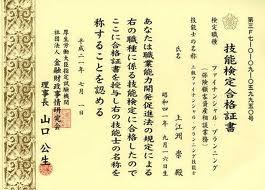 第三F7-〇-〇〇九-〇五九九五〇号
技能検定合格証書
検定職種
ファイナンシャル・プランニング
(保険顧客資産相談業務)
技能士の名称
二級ファイナンシャル・プランニング
技能士
氏名
上江洲 崇 殿
昭和四一年九月一六日生
あなたは職業能力開発促進法の規定による
右の職種に係る技能検定に合格したので
ここに合格証書を授与し右の技能士の名称を
称することを認める
平成二一年七月一日
厚生労働大臣指定試験機関
社団法人 金融財政事情研究会
理事長 山口公生